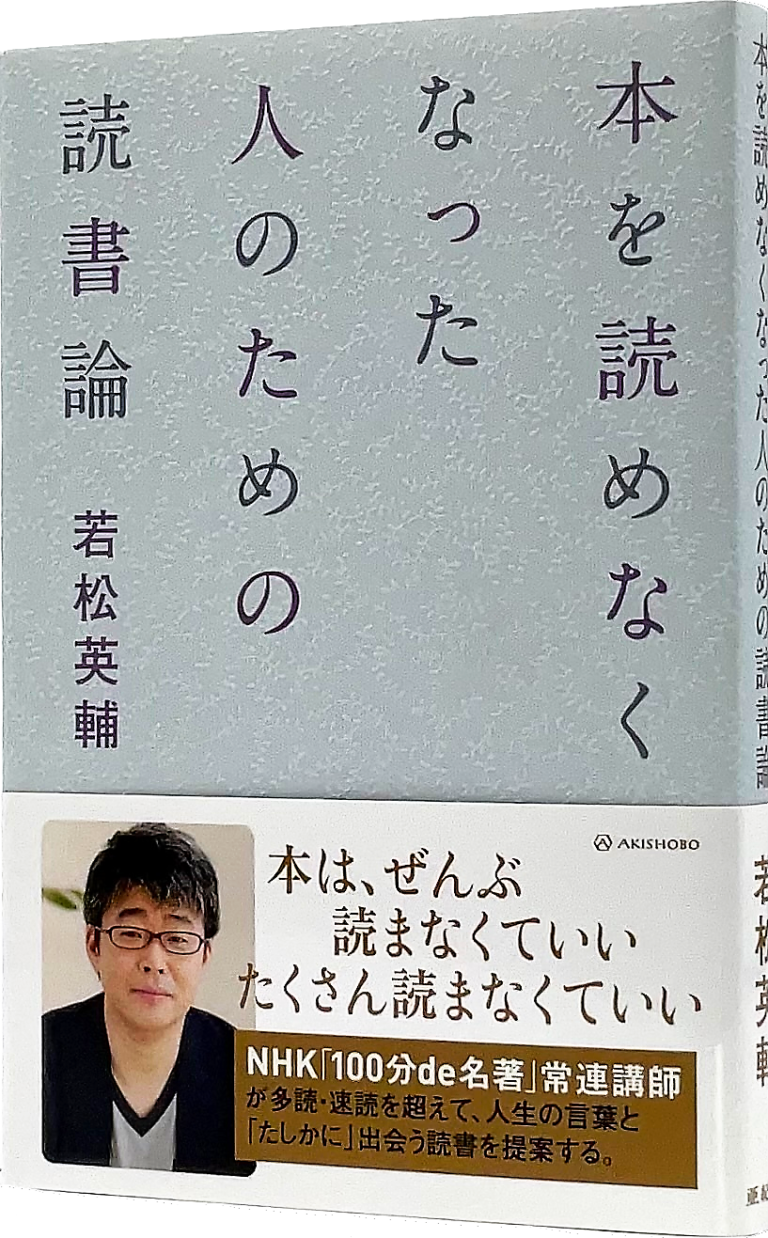 本を読めなく
なった
人のための
読書論
若松英輔
AKISHOBO
本は、ぜんぶ
読まなくていい
たくさん読まなくていい
NHK「100分de名著」常連講師
が多読・速読を超えて、人生の言葉と
「たしかに」出会う読書を提案する。
本を読めなくなった人のための読書論
若松英輔
亜紀